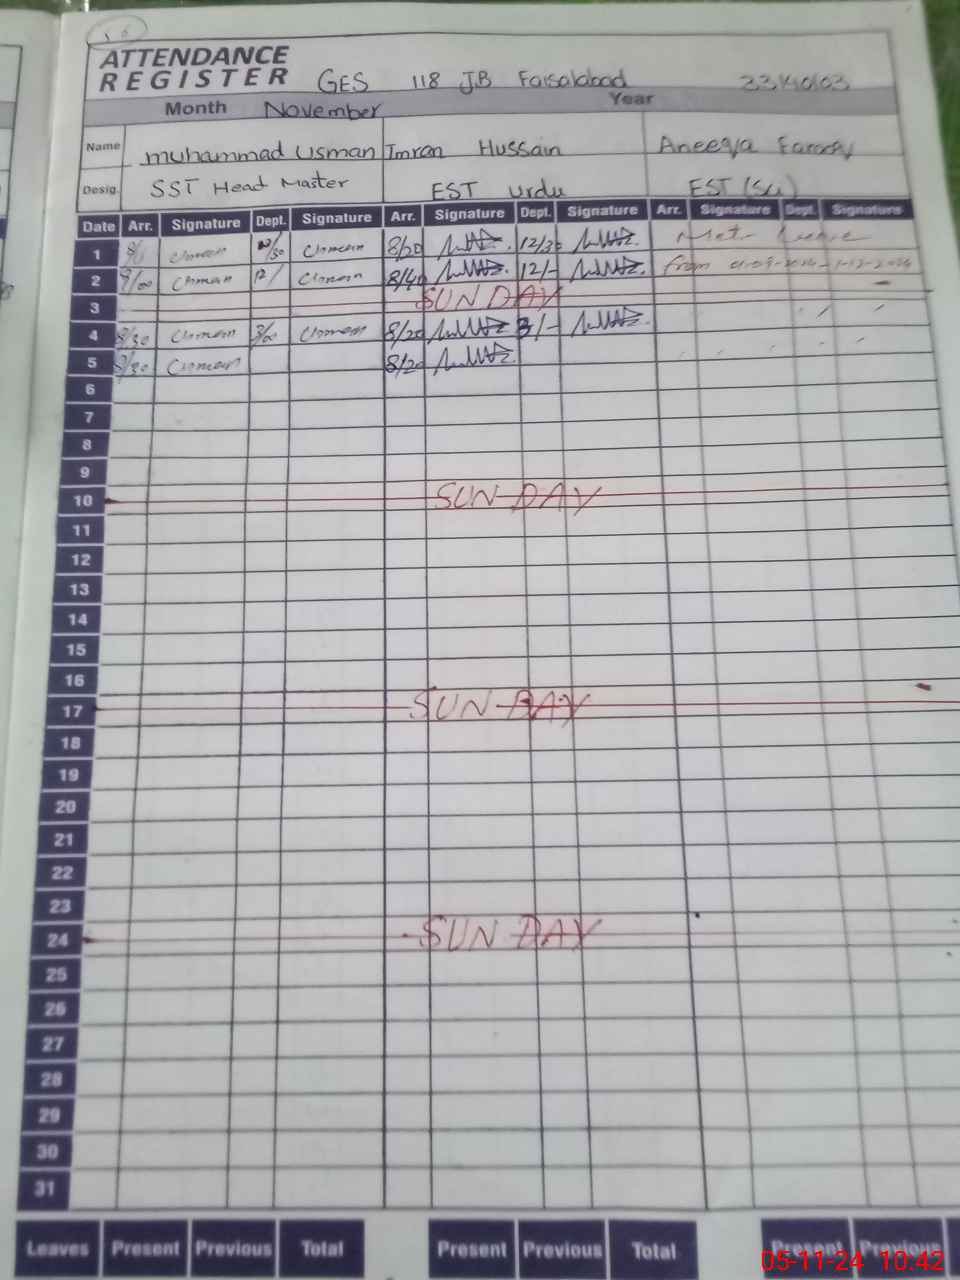 ATTENDANCE
REGISTER GES 118 JB Faisalabad
Month November Year
Name muhammad Usman Imran Hussain Aneeqa Farooq
Desig. SST Head Master EST Urdu EST (Sc)
Date Arr. Signature Dept. Signature Arr. Signature Dept. Signature Arr. Signature Dept. Signature
1 12/30 8/20 12/30
2 9/00 12/ 8/40 12/- From
3 SUN DAY
4 8/30 3/00 8/20 3/-
5 8/30 8/20
6
7
8
9
10 SUN DAY
11
12
13
14
15
16
17 SUN DAY
18
19
20
21
22
23
24 SUN DAY
25
26
27
28
29
30
31
Leaves Present Previous Total Present Previous Total Present Previous
05-11-24 10:42